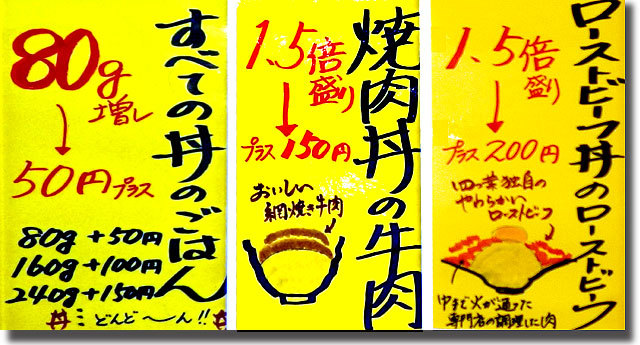 すべての丼のごはん
80g
増し
↓
50円プラス
80g+50円
160g+100円
240g+150円
丼ミどんど〜ん!!丼
焼肉丼の牛肉
1.5倍
盛り
↓
プラス150円
おいしい
網焼き牛肉
ローストビーフ丼のローストビーフ
1.5倍
盛り
↓
プラス200円
四つ葉独自の
やわらかい
ローストビーフ
中まで火が通った
専門店の調理した肉